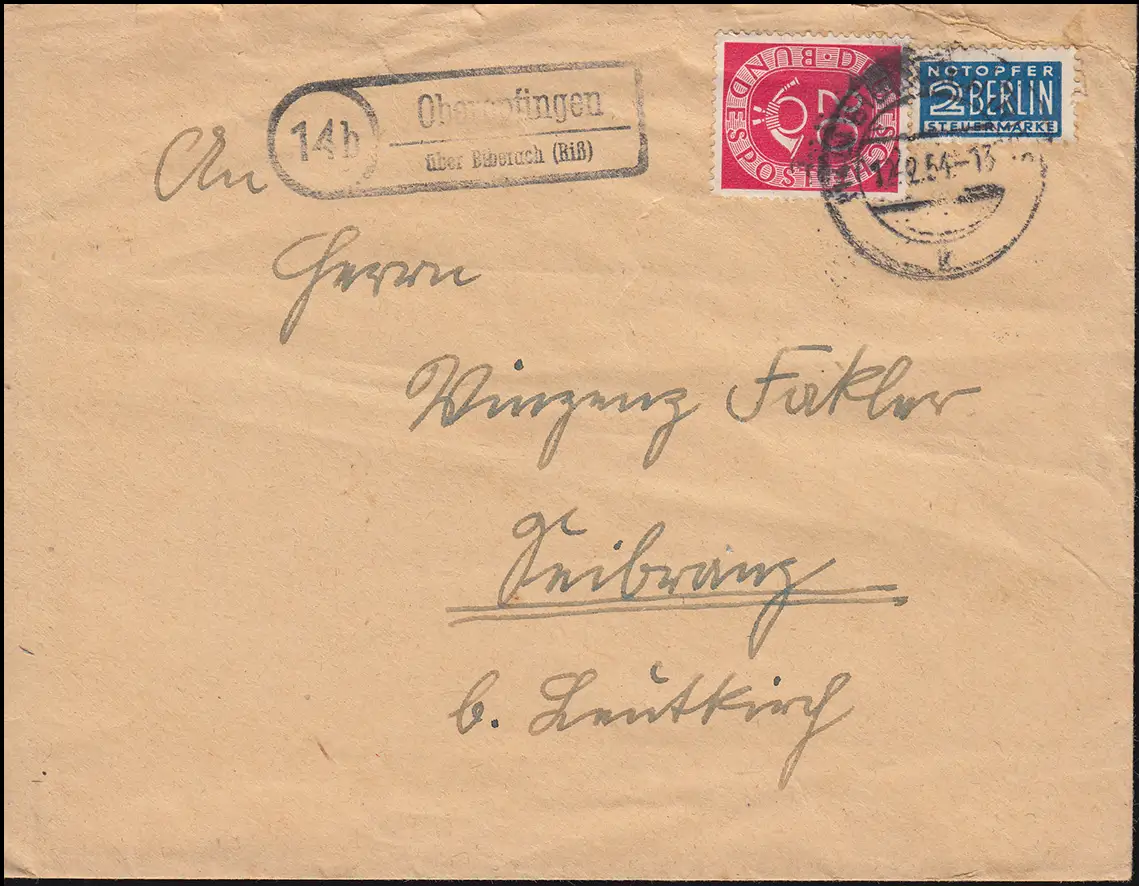 14b
Oberopfingen
über Biberach (Riß)
DEUTSCHE BUNDESPOST
20
NOTOPFER
2 BERLIN
STEUERMARKE
12.2.54-13
An
Herrn
Winzenz Fakler
Seibranz
b. Leutkirch